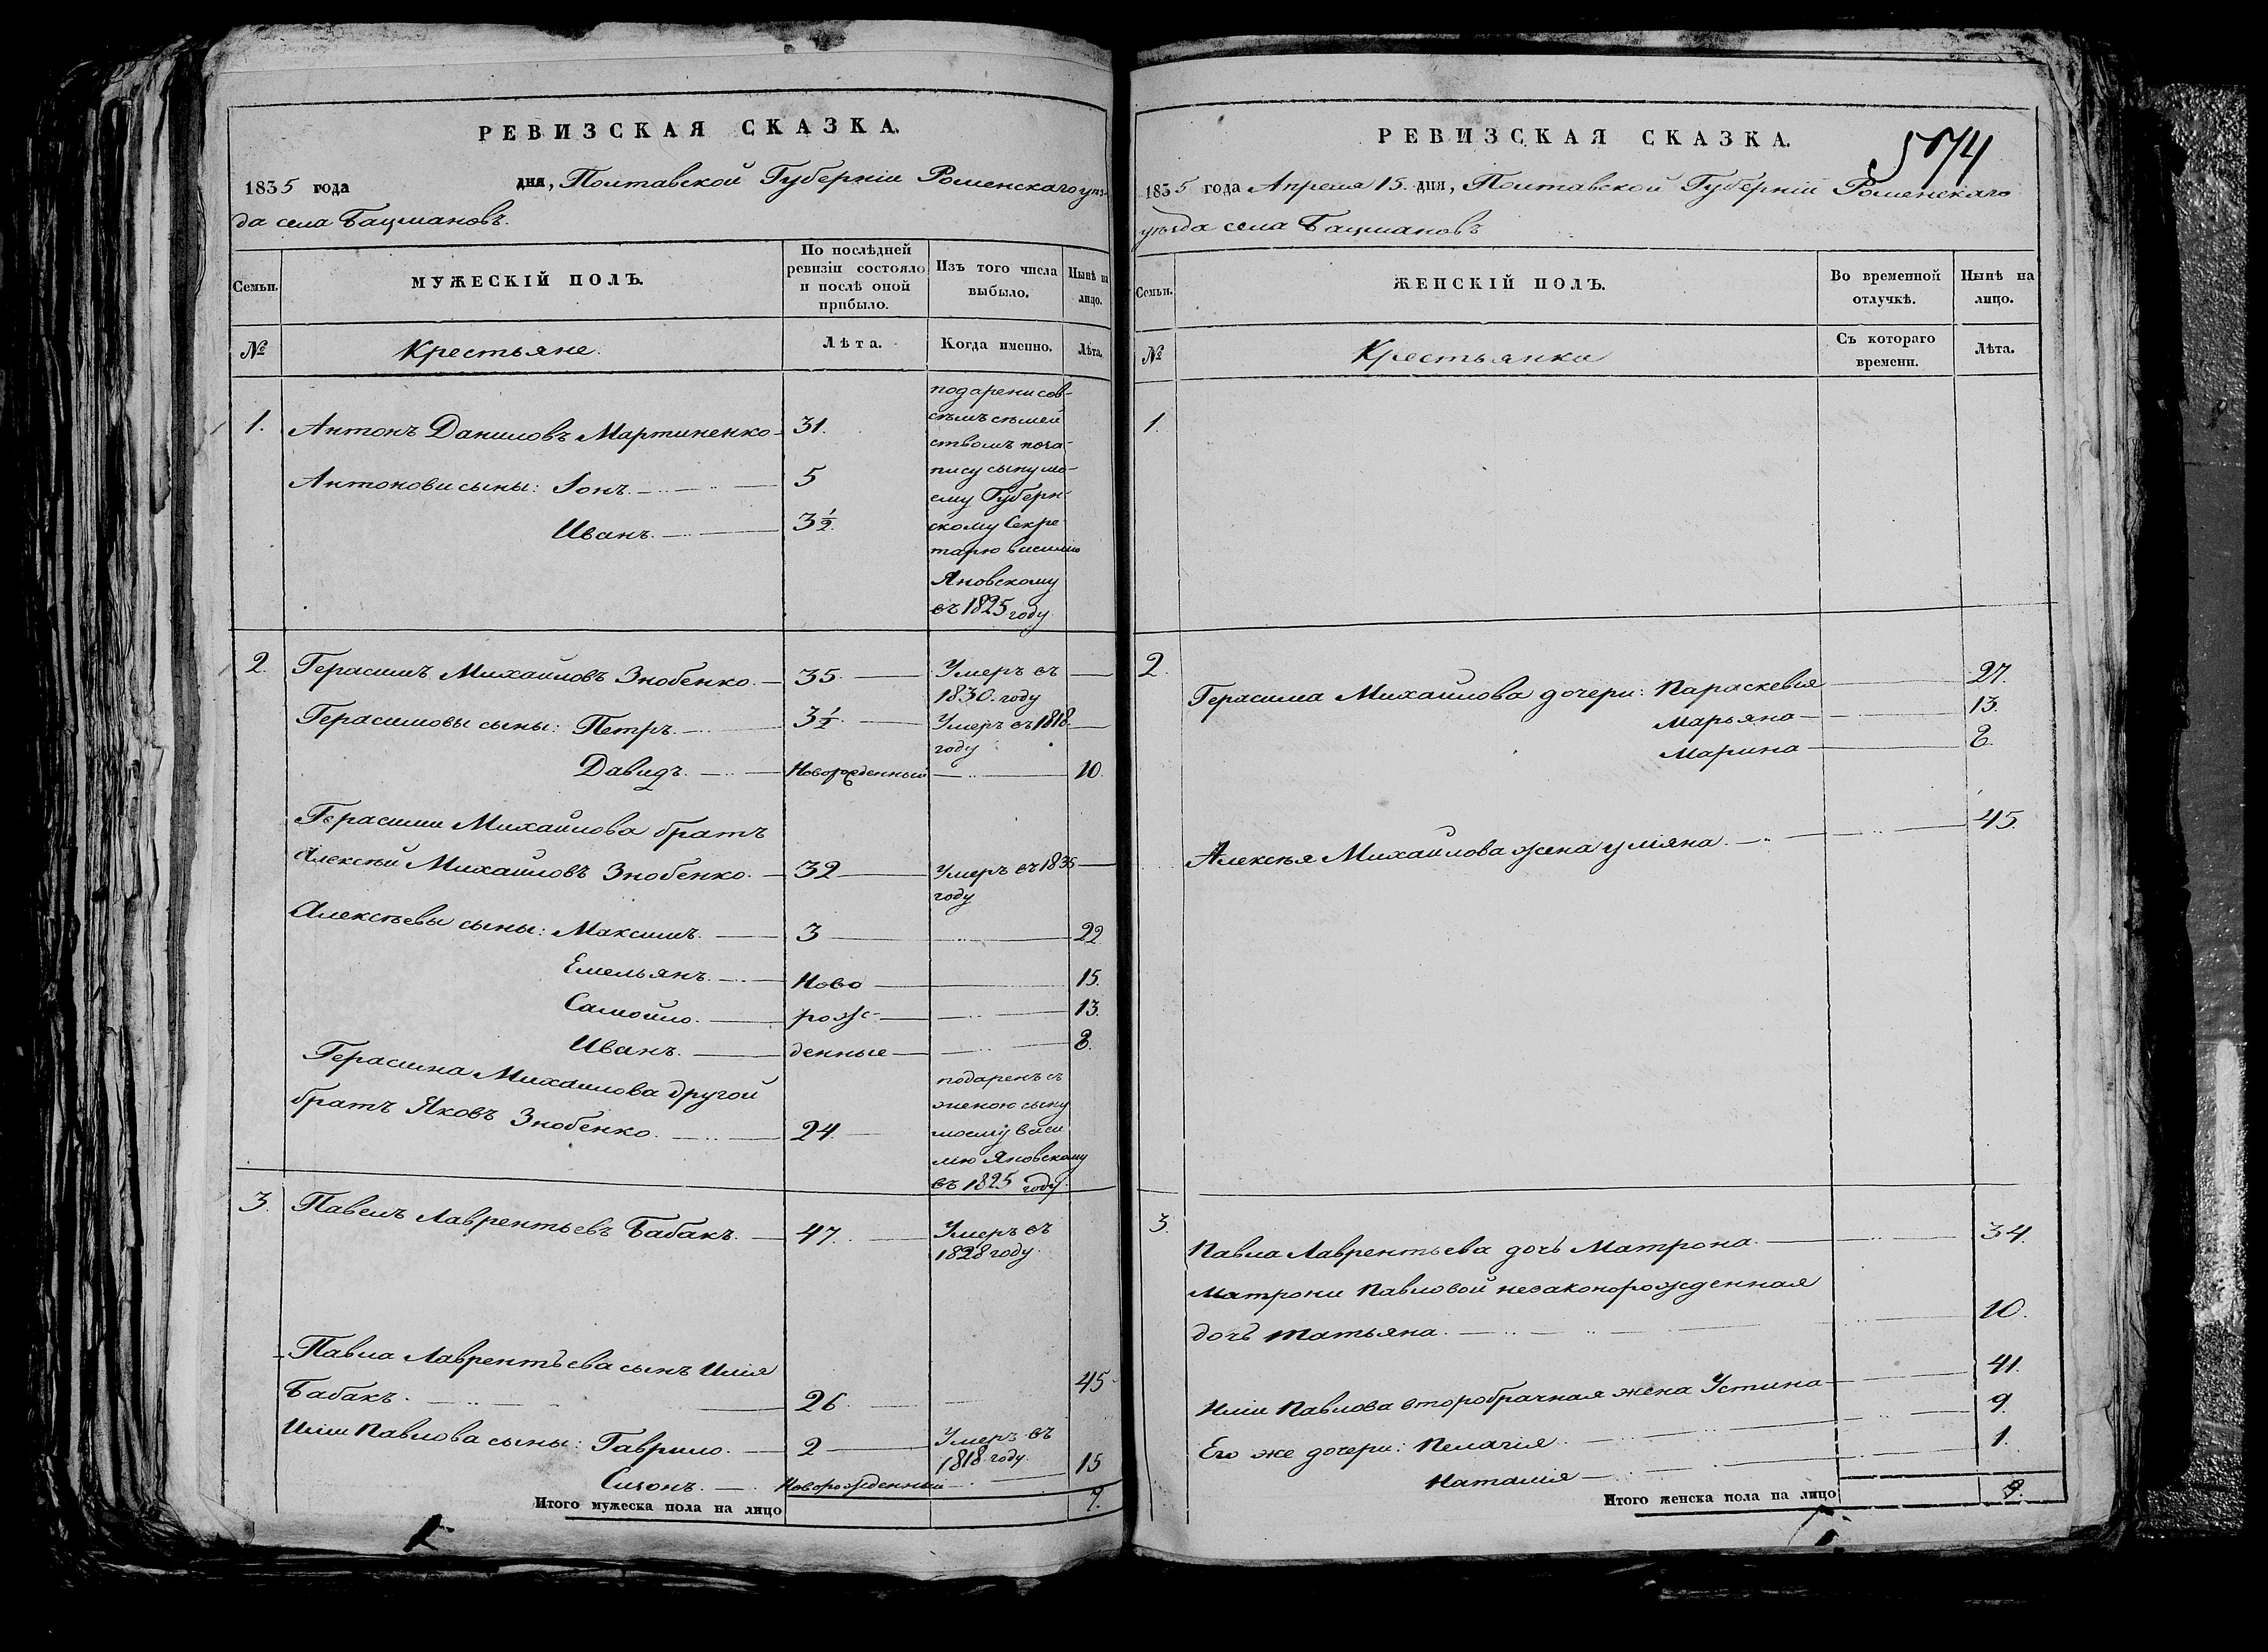 РЕВИЗСКАЯ СКАЗКА.
1835 года дня, Полтавской Губернiи Роменскаго уѣз-
да села Бацмановъ.
Семьи.
МУЖЕСКIЙ ПОЛЪ.
По послѣдней ревизiи состояло и послѣ оной прибыло.
Изъ того числа выбыло.
Нынѣ на лицо.
№
Крестьяне.
Лѣта.
Когда именно.
Лѣта.
1. Антонъ Даниловъ Мартиненко 31.
Антонови сыны: Iонъ. 5
Иванъ. 3½.
подарени сов-
сѣмъ сѣмей
ствомъ
сыну мо-
ему Губерн-
скому Секре-
тарю Василию
Яновскому
въ 1825 году
2. Герасимъ Михайловъ Знобенко. 35. Умеръ въ
1830. году
Герасимовы сыны: Петръ. 3½. Умеръ въ 1818.
году
Давидъ. Новорожденный 10.
Герасима Михайлова братъ
Алексѣй Михайловъ Знобенко. 32 Умеръ въ 1835
году
Алексѣевы сыны: Максимъ. 3 22.
Емельянъ. Ново 15.
Самойло. рож- 13.
Иванъ. денные 8.
Герасима Михаилова другой
братъ Яковъ Знобенко. 24.
подаренъ съ
женою сыну
моему Васи
лию Яновскому
въ 1825 году.
3. Павелъ Лаврентьевъ Бабакъ. 47. Умеръ въ
1828 году.
Павла Лаврентьева сынъ Илiя
Бабакъ. 26. 45
Илiи Павлова сыны: Гаврило. 2 Умеръ въ
1818. году.
Сизонъ. Новорожденный 15
Итого мужеска пола на лицо 7.
574
РЕВИЗСКАЯ СКАЗКА.
1835 года Апреля 15. дня, Полтавской Губернiй Роменскаго
уѣзда села Бацмановъ
Семьи.
ЖЕНСКIЙ ПОЛЪ.
Во временной отлучкѣ.
Нынѣ на лицо.
№
Крестьянки
Съ котораго времени.
Лѣта.
1.
2.
Герасима Михаилова дочери: Параскевiя 27.
Марьяна 13.
Марина 8.
Алексѣя Михаилова жена Улiяна. 45.
3.
Павла Лаврентьева дочь Матрона. 34.
Матрони Павловой незаконорожденная
дочь Татьяна. 10.
Илiи Павлова второбрачная жена Устина 41.
Его же дочери: Пелагiя. 9.
Наталiя 1.
Итого женска пола на лицо 9.